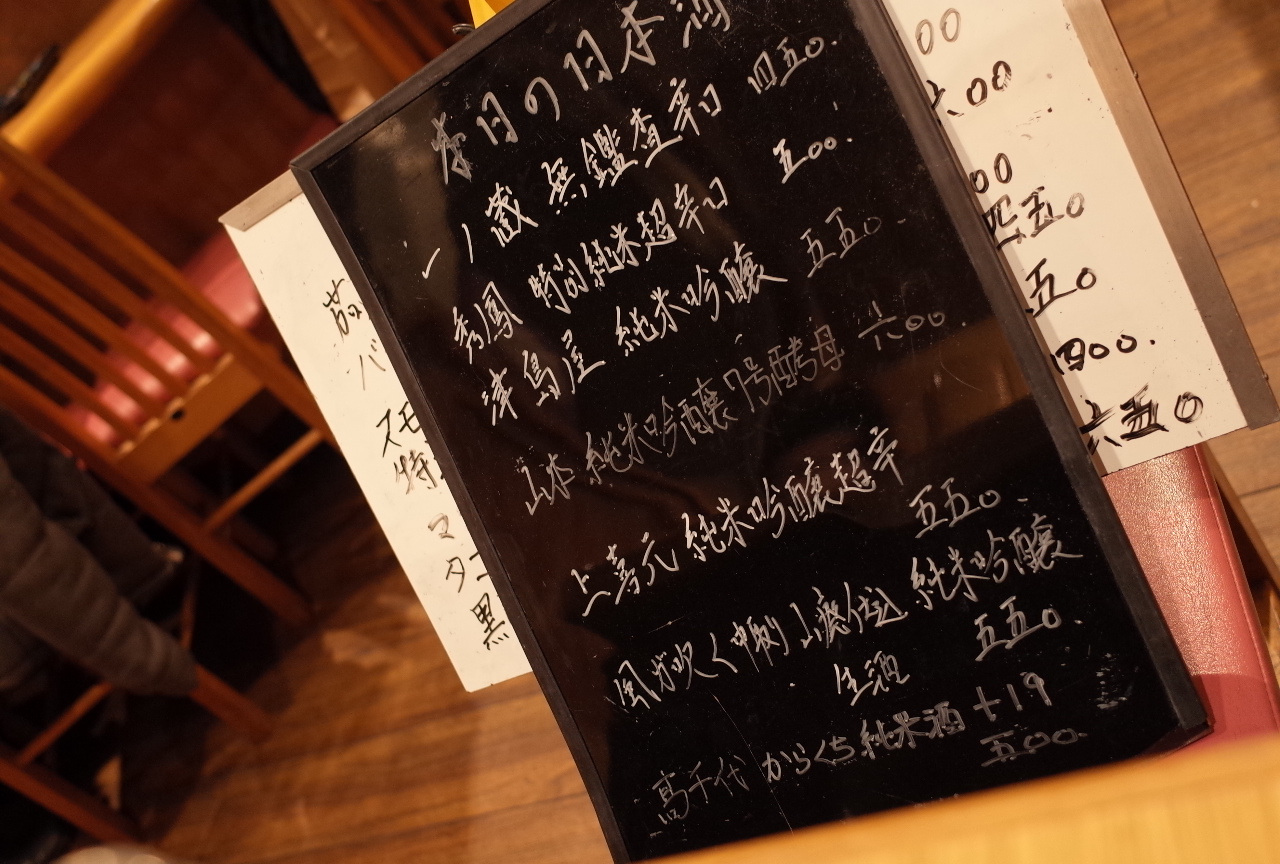 本日の日本酒
一ノ蔵 無鑑査辛口 四五〇.
秀鳳 特別純米超辛口 五〇〇.
津島屋 純米吟醸 五五〇.
山本 純米吟醸7号酵母 六〇〇.
上喜元 純米吟醸超辛
五五〇.
風が吹く 中取り 山廃仕込 純米吟醸
生酒 五五〇.
髙千代 からくち純米酒 +19
五〇〇.
バ
スモ
特
マ
タコ
黒
〇〇
六〇〇
〇〇
四五〇
五〇
四〇〇.
六五〇